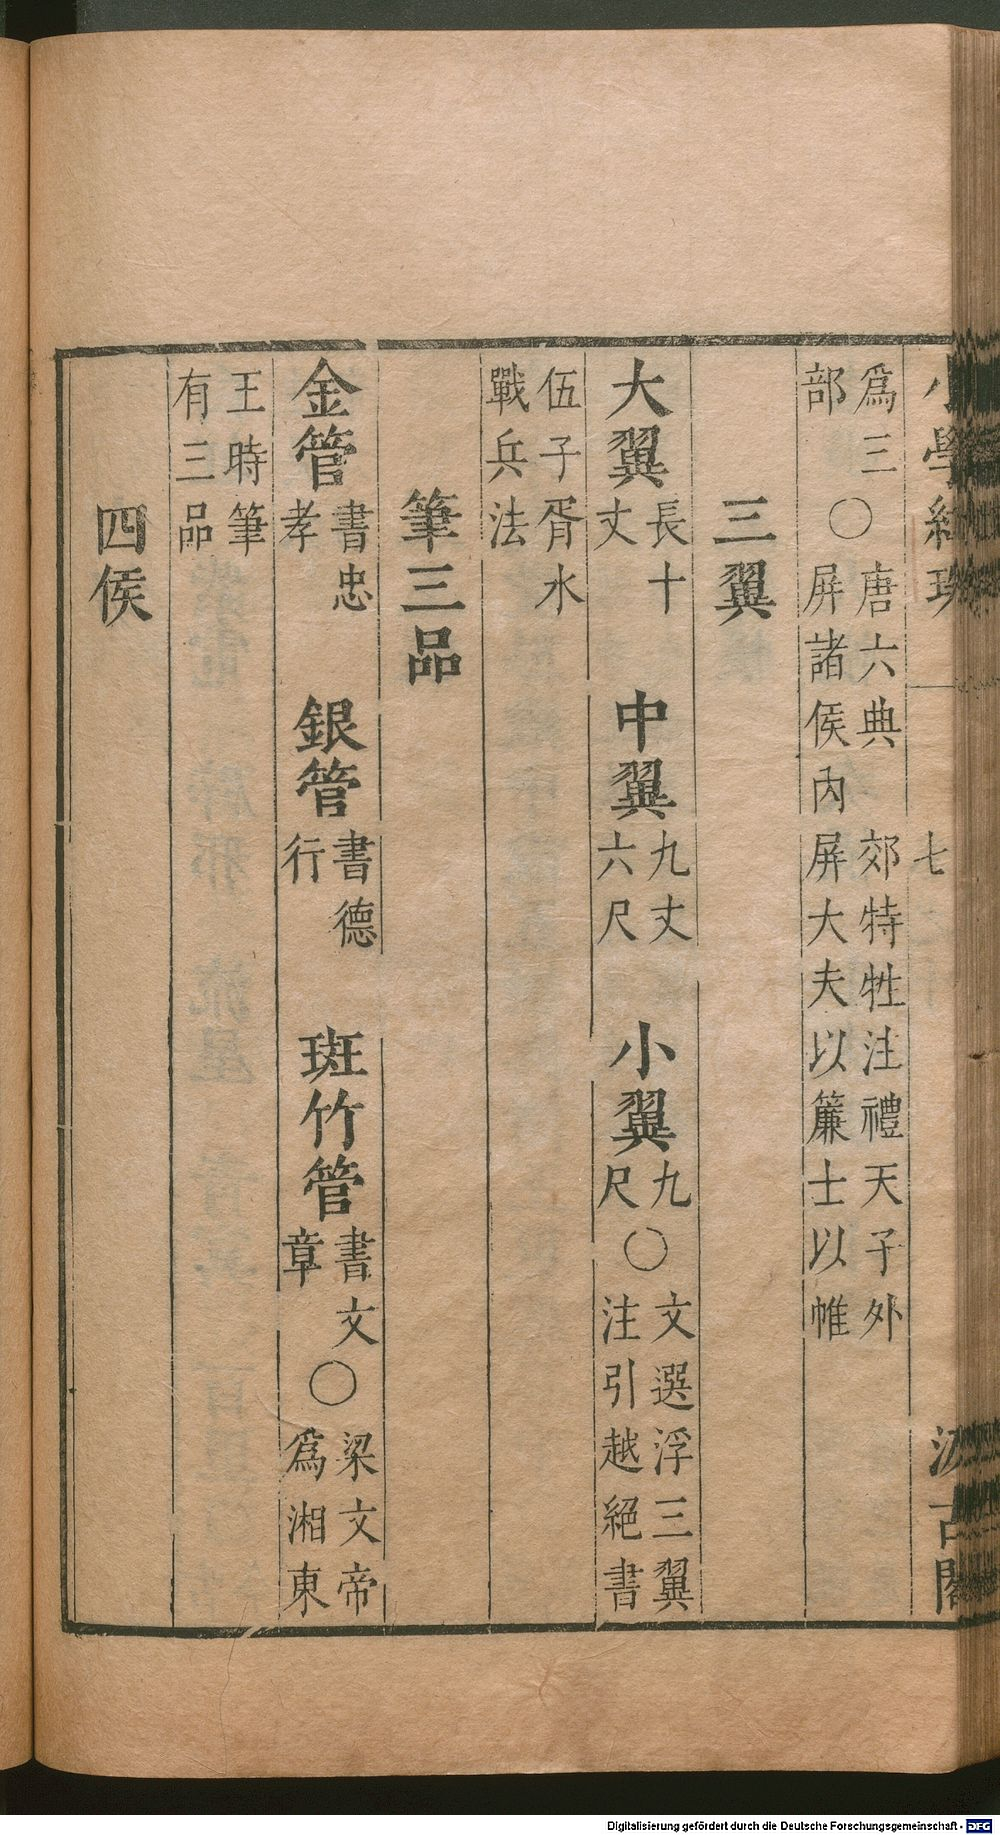 小學紺珠 七 汲古閣
爲三部○唐六典 郊特牲注禮天子外屏諸侯內屏大夫以簾士以帷
三翼
大翼長十丈 中翼九丈六尺 小翼九尺○文選浮三翼注引越絕書
伍子胥水戰兵法
筆三品
金管書忠孝 銀管書德行 斑竹管書文章○梁文帝爲湘東
王時筆有三品
四侯
Digitalisierung gefördert durch die Deutsche Forschungsgemeinschaft - DFG